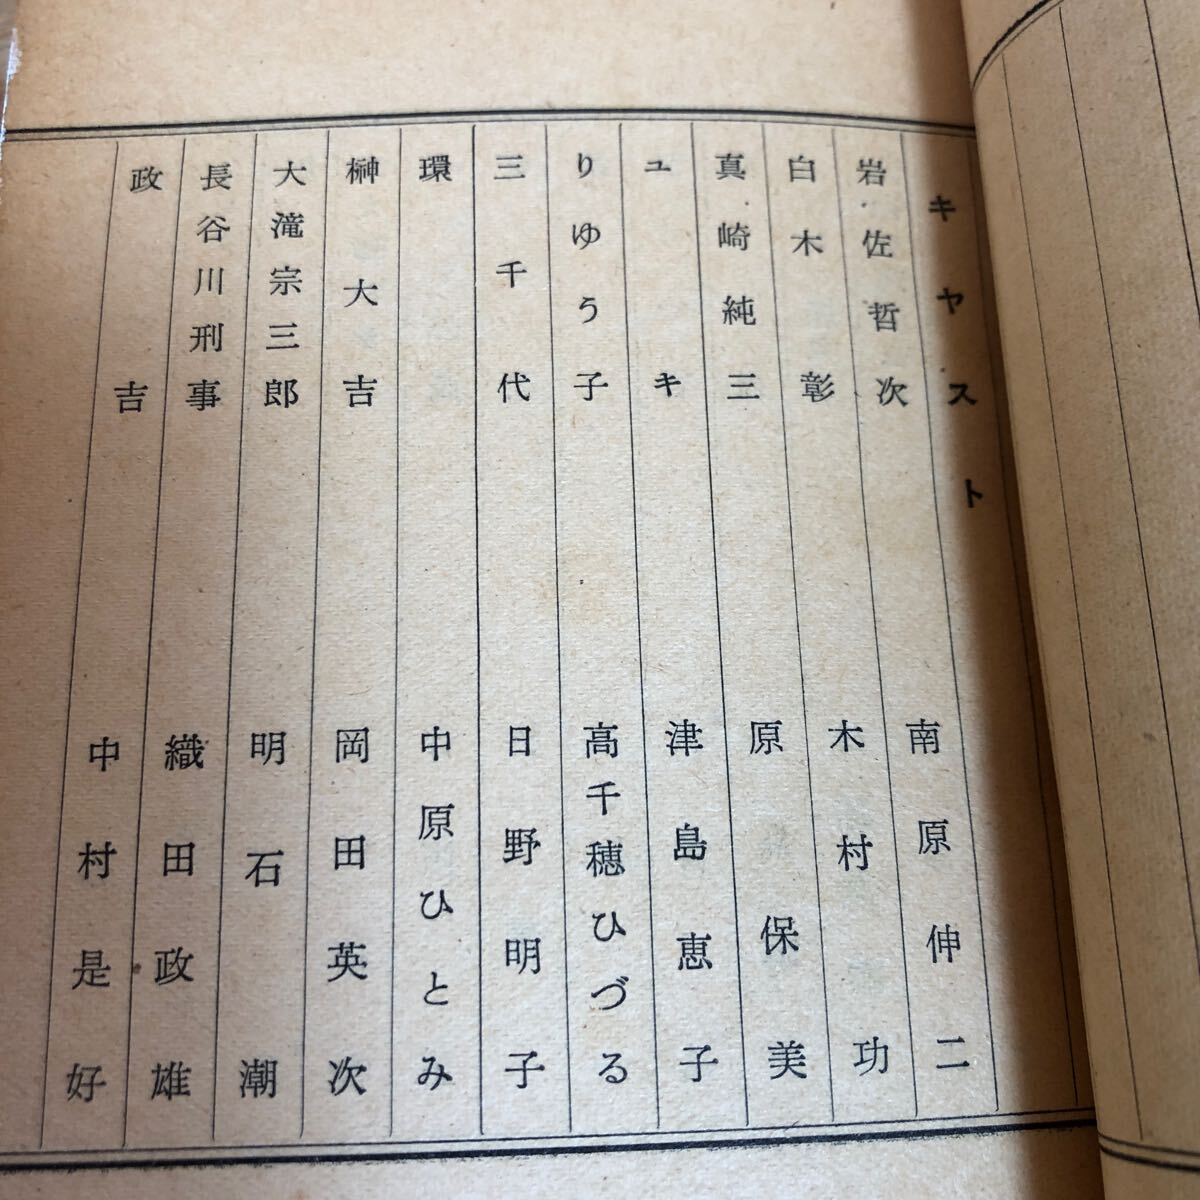 キヤスト
岩佐哲次 南原伸二
白木彰 木村功
真崎純三 原保美
ユキ 津島恵子
りゆう子 高千穂ひづる
三千代 日野明子
環 中原ひとみ
榊大吉 岡田英次
大滝宗三郎 明石潮
長谷川刑事 織田政雄
政吉 中村是好